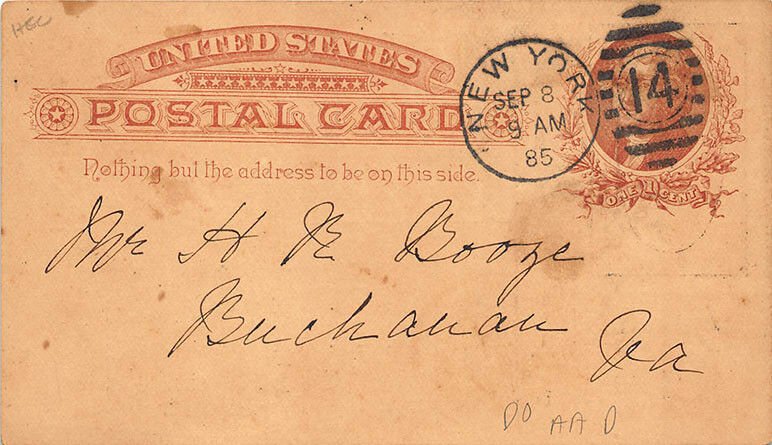 UNITED STATES
POSTAL CARD
Nothing but the address to be on this side.
NEW YORK
SEP 8
9 AM
85
14
ONE 1 CENT
Mr H R Booze
Buchanan Va
DO AA D